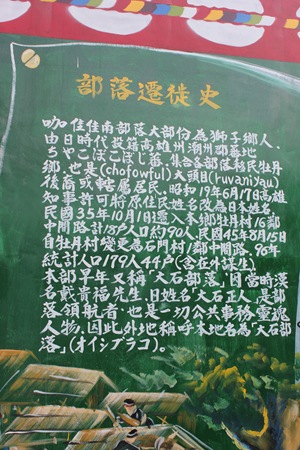 部落遷徙史
咖住住南部落大部份為獅子鄉人,
由日時代設籍高雄州潮州郡蕃地
ちやこぼこぼじ蕃,集合各部落移民牡丹
鄉.也是(chofowful)大頭目(ruvaniyau)
後裔或轄屬居民。昭和19年6月17日高雄
知事許可將原住民姓名改為日本姓名
民國35年10月1日遷入本鄉牡丹村6鄰
中間路計18戶人口約90人.民國45年8月15日
自牡丹村變更為石門村1鄰中間路.96年
統計人口179人44戶(含在外謀生)
本部早年又稱「大石部落」因當時漢
名戴貴福先生.日姓名「大石正人」是部
落領航者.也是一切公共事務靈魂
人物.因此外地稱呼本地名為「大石部
落」(オイシブラコ)。